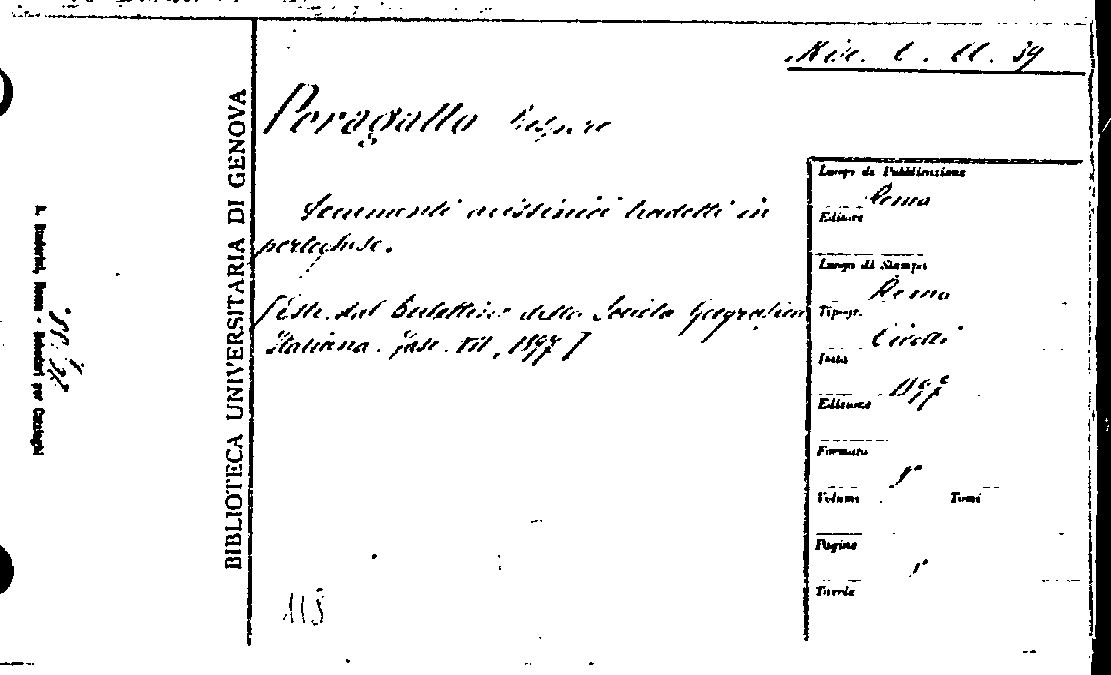 Misc. C. 11. 39
Peragallo Prospero
Documenti abissinici tradotti in
portoghese.
[Estr. dal Bollettino della Società Geografica
Italiana. Fasc. XII, 1897]
113
BIBLIOTECA UNIVERSITARIA DI GENOVA
Luogo di Pubblicazione
Roma
Editore
Luogo di Stampa
Roma
Tipogr.
Civelli
Data
1897
Edizione
Formato
8°
Volumi Tomi
Pagine
Tavole
Roma - Schedari per Cataloghi